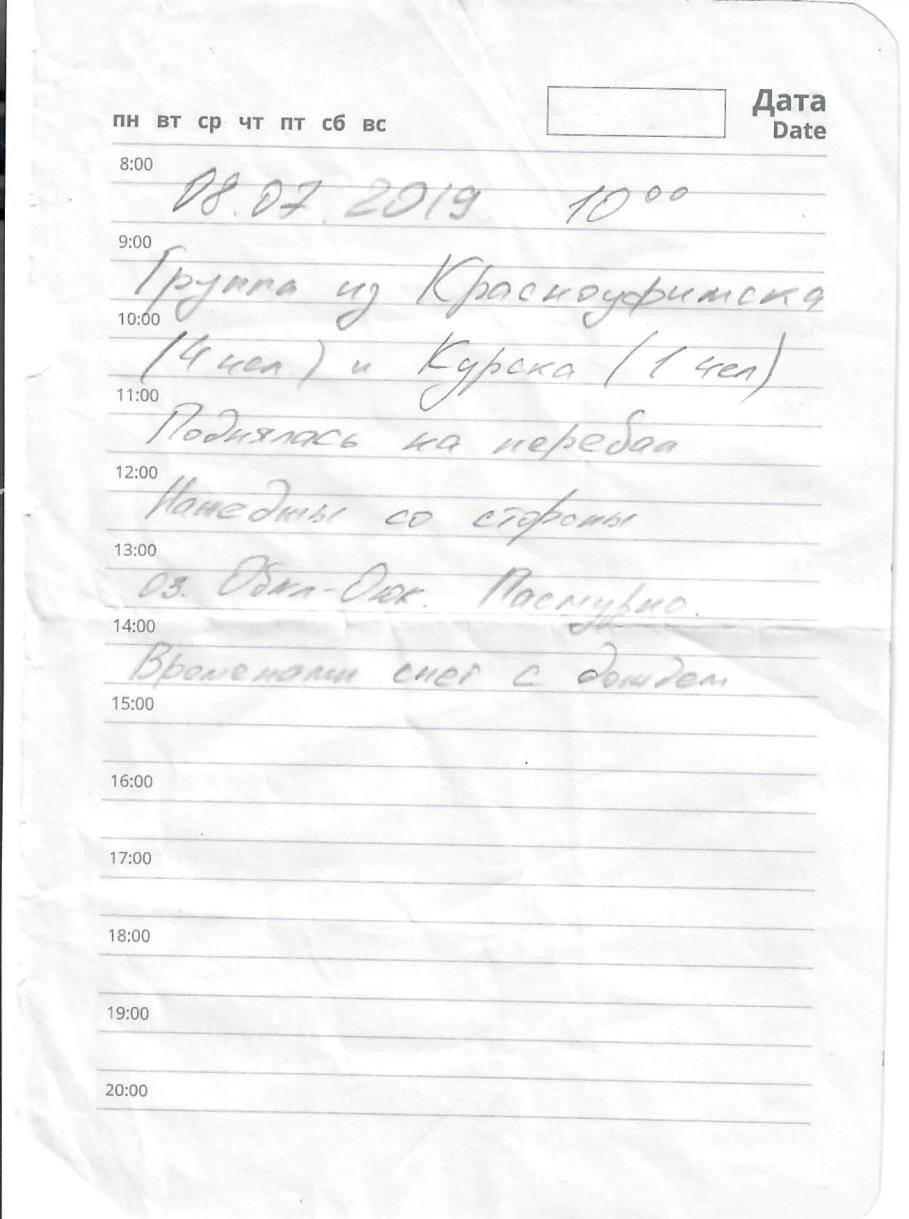 пн вт ср чт пт сб вс
Дата
Date
8:00
08.07.2019 10⁰⁰
9:00
Группа из Красноуфимска
10:00
(4 чел) и Курска (1 чел)
11:00
Поднялась на перевал
12:00
со стороны
13:00
оз. Пасмурно.
14:00
Временами снег с дождем
15:00
16:00
17:00
18:00
19:00
20:00